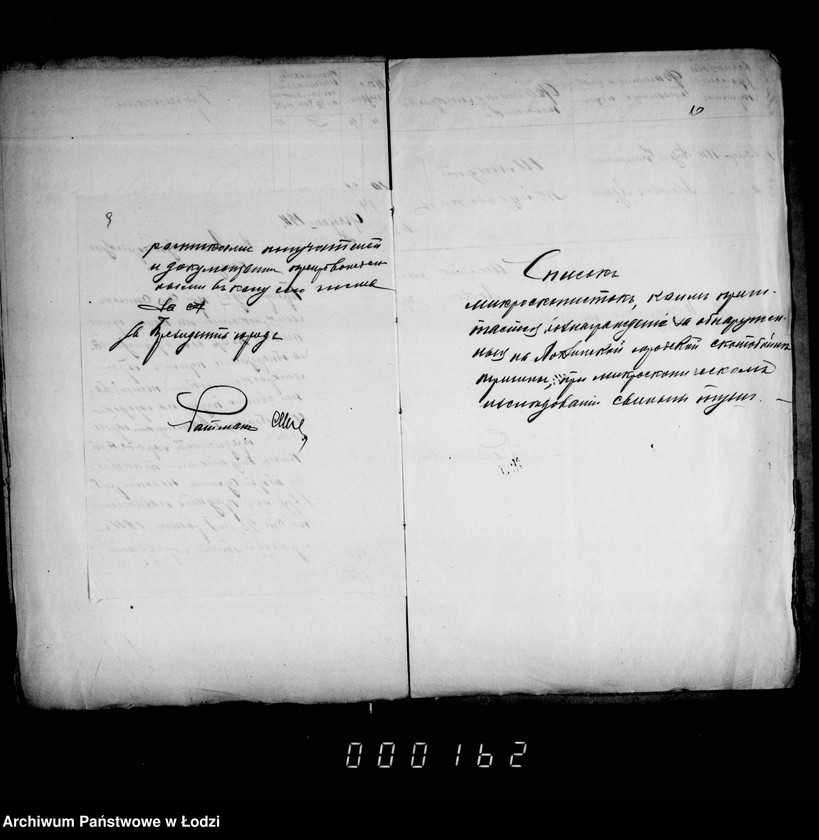 9
росписками получателей
и документами
ными въ кассу сего числа
За
За Президента города
Ратманъ
10
Списокъ
микроскопистокъ, коимъ причи-
тается вознагражденіе за обнаружен-
ныя на Лодзинской городской скотобойнѣ
трихины, при микроскопическомъ
изслѣдованіи свиныхъ тушъ. —
000162
Archiwum Państwowe w Łodzi